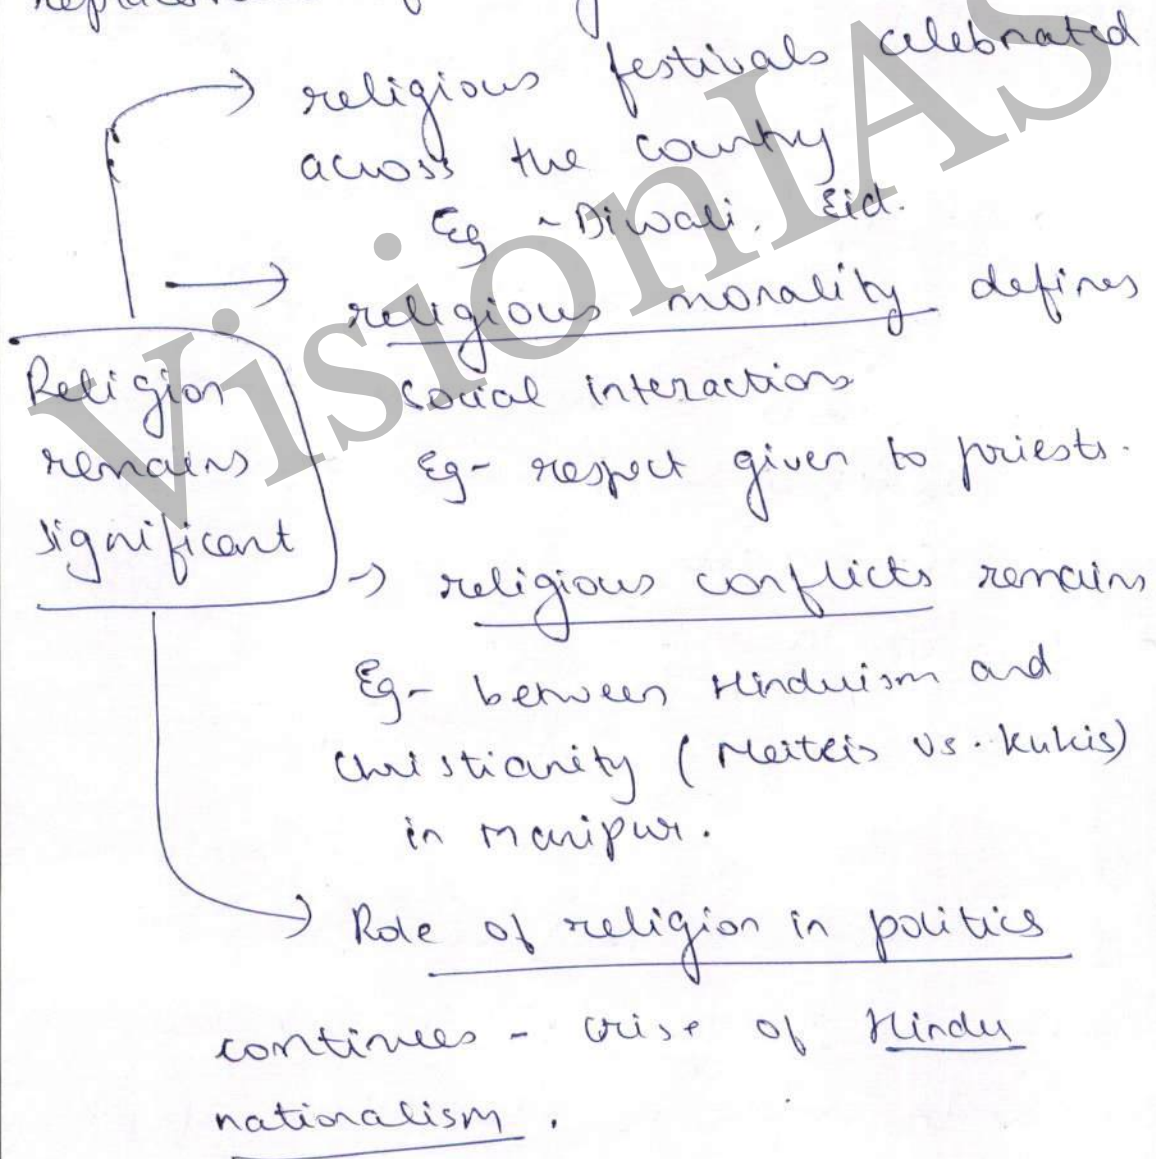 religious festivals celebrated
across the country
Eg - Diwali, Eid.
religious morality defines
social interactions
Eg- respect given to priests.
Religion
remains
significant
religious conflicts remains
Eg- between Hinduism and
Christianity (Meiteis vs. Kukis)
in Manipur.
Role of religion in politics
continues - rise of Hindu
nationalism.
VisionIAS